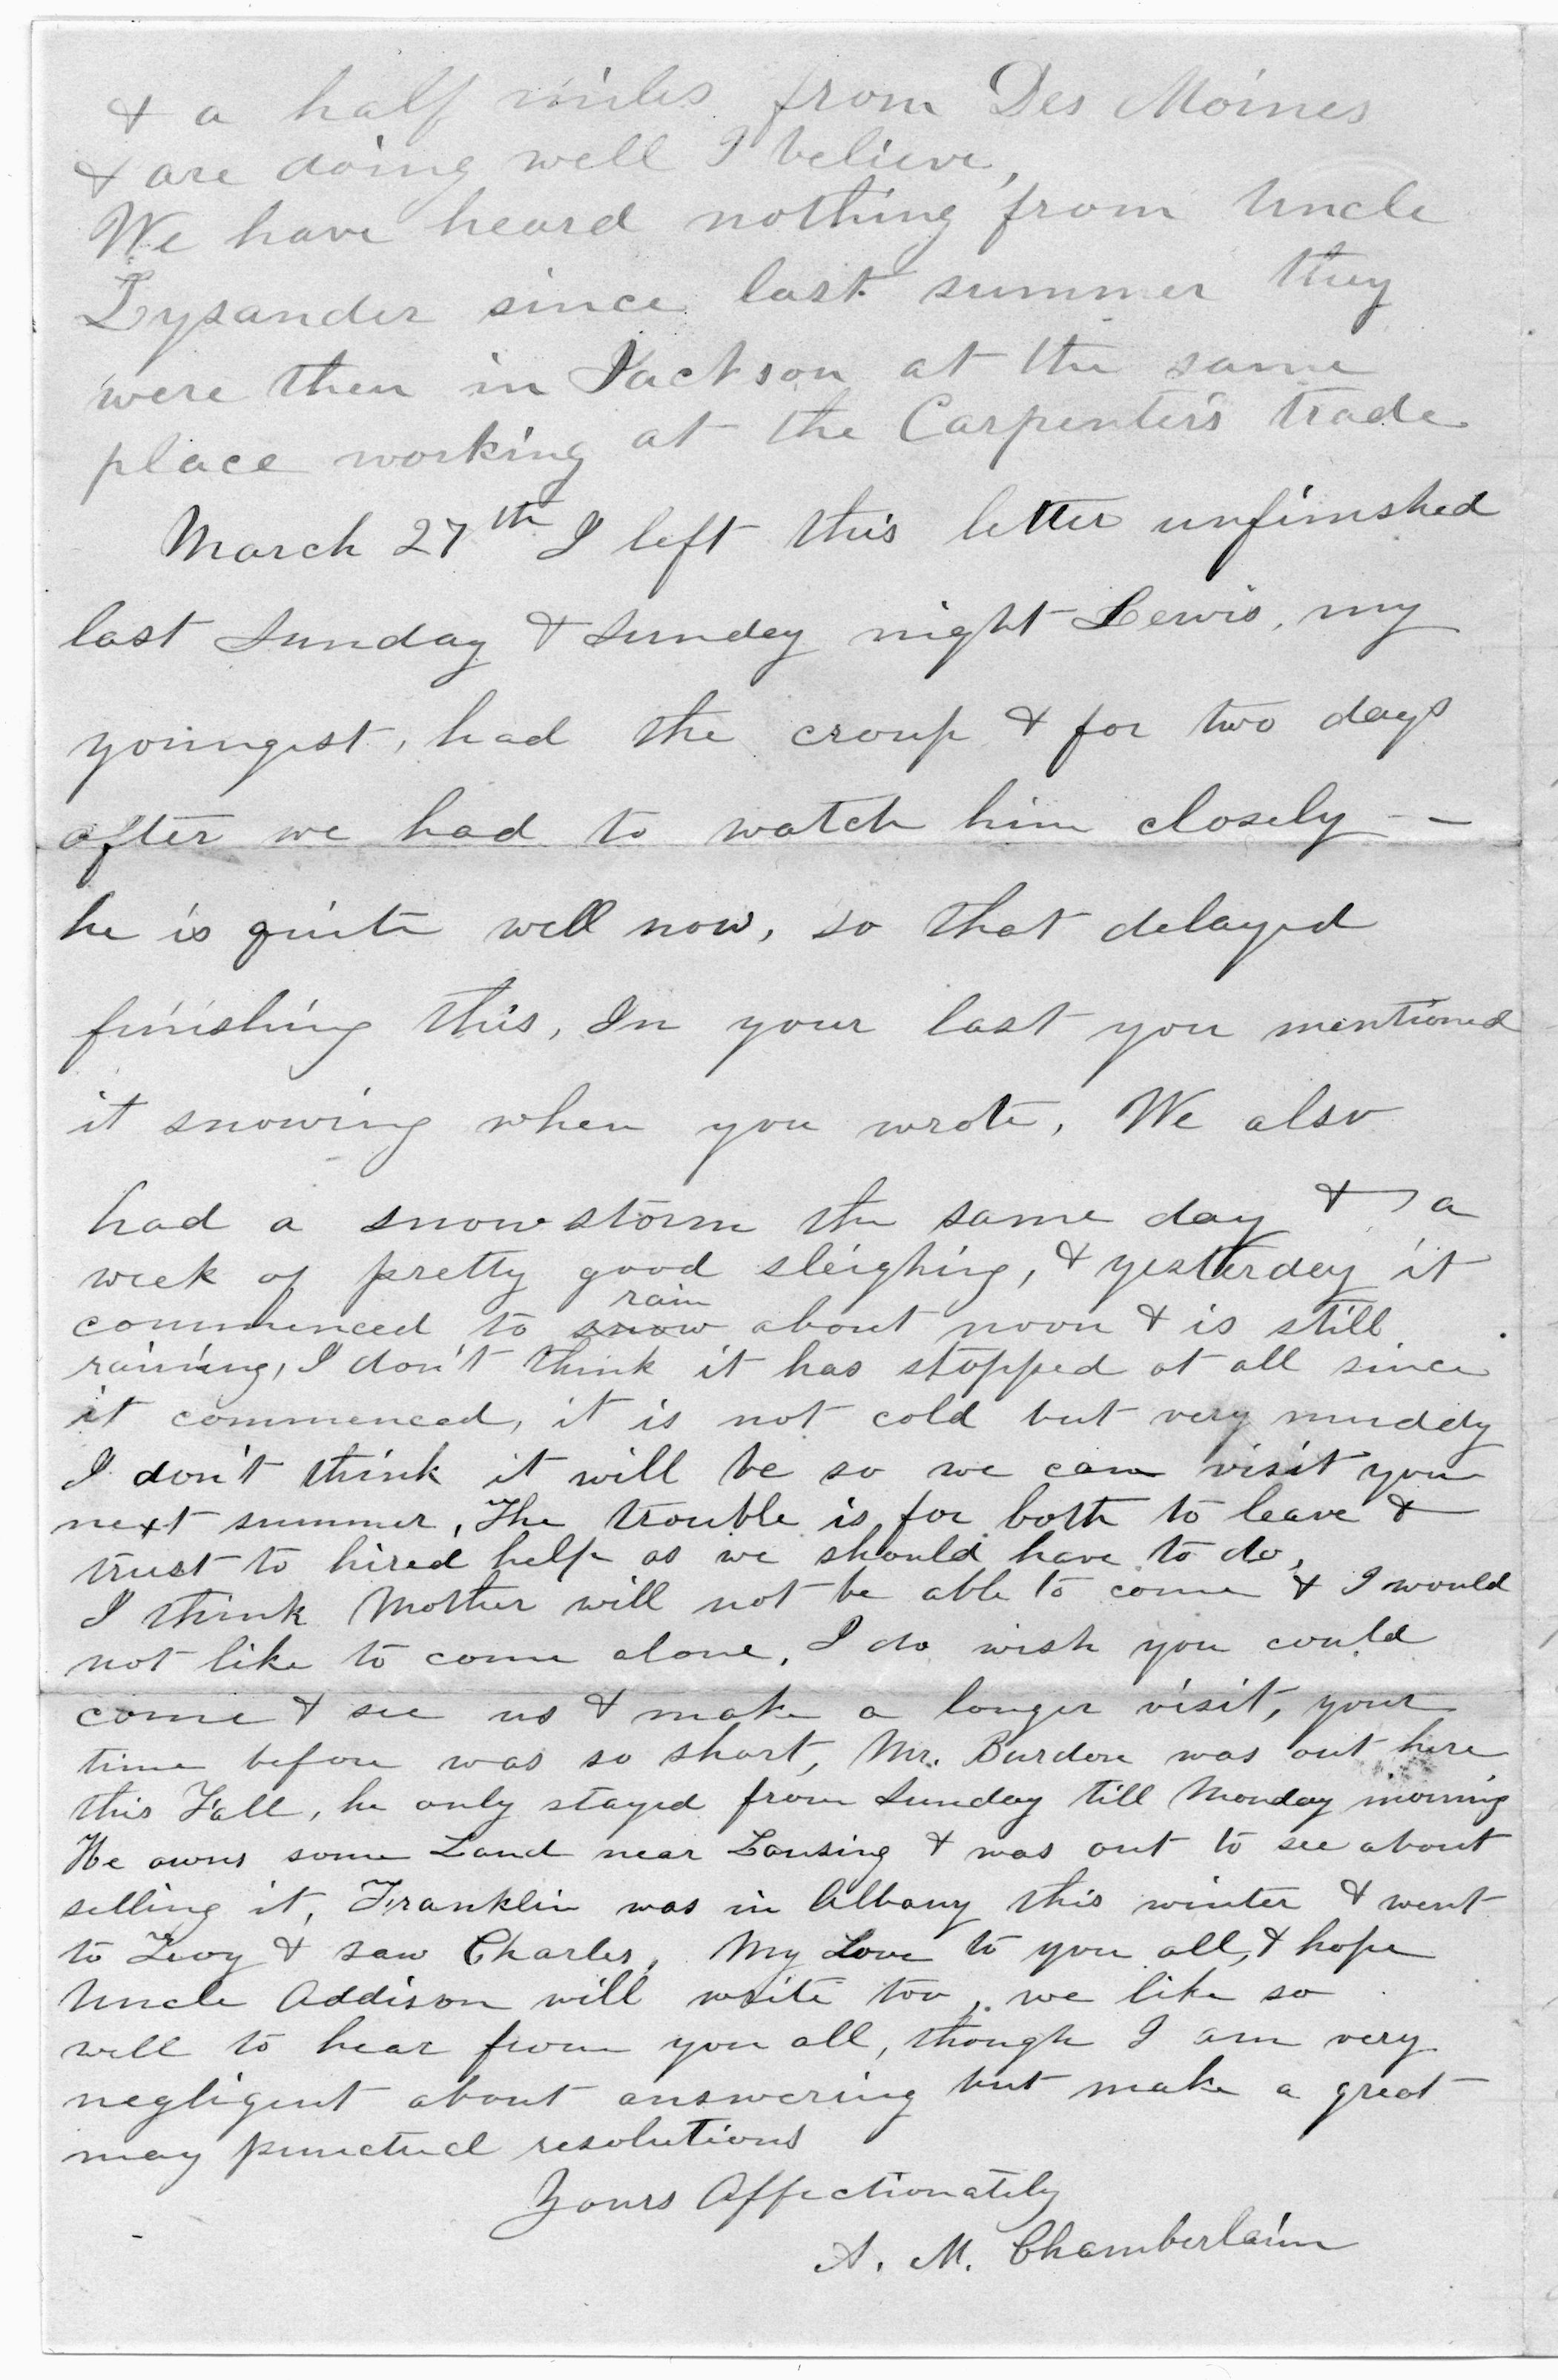 & a half miles from Des Moines
& are doing well I believe,
We have heard nothing from Uncle
Lysander since last summer they
were then in Jackson at the same
place working at the Carpenter's trade
March 27th I left this letter unfinished
last Sunday & Sunday night Lewis, my
youngest, had the croup & for two days
after we had to watch him closely --
he is quite well now, so that delayed
finishing this, In your last you mentioned
it snowing when you wrote, We also
had a snow storm the same day & a
week of pretty good sleighing, & yesterday it
rain
commenced to snow about noon & is still
raining, I don't think it has stopped at all since
it commenced, it is not cold but very muddy
I don't think it will be so we can visit you
next summer, The trouble is for both to leave &
trust to hired help as we should have to do,
I think Mother will not be able to come & I would
not like to come alone, I do wish you could
come & see us & make a longer visit, your
time before was so short, Mr. Burdon was out here
this Fall, he only stayed from Sunday till Monday morning
He owns some Land near Lansing & was out to see about
selling it, Franklin was in Albany this winter & went
to & saw Charles, My Love to you all, & hope
Uncle Addison will write too, we like so
well to hear from you all, though I am very
negligent about answering but make a great
may punctual resolutions
Yours Affectionately
A. M. Chamberlain